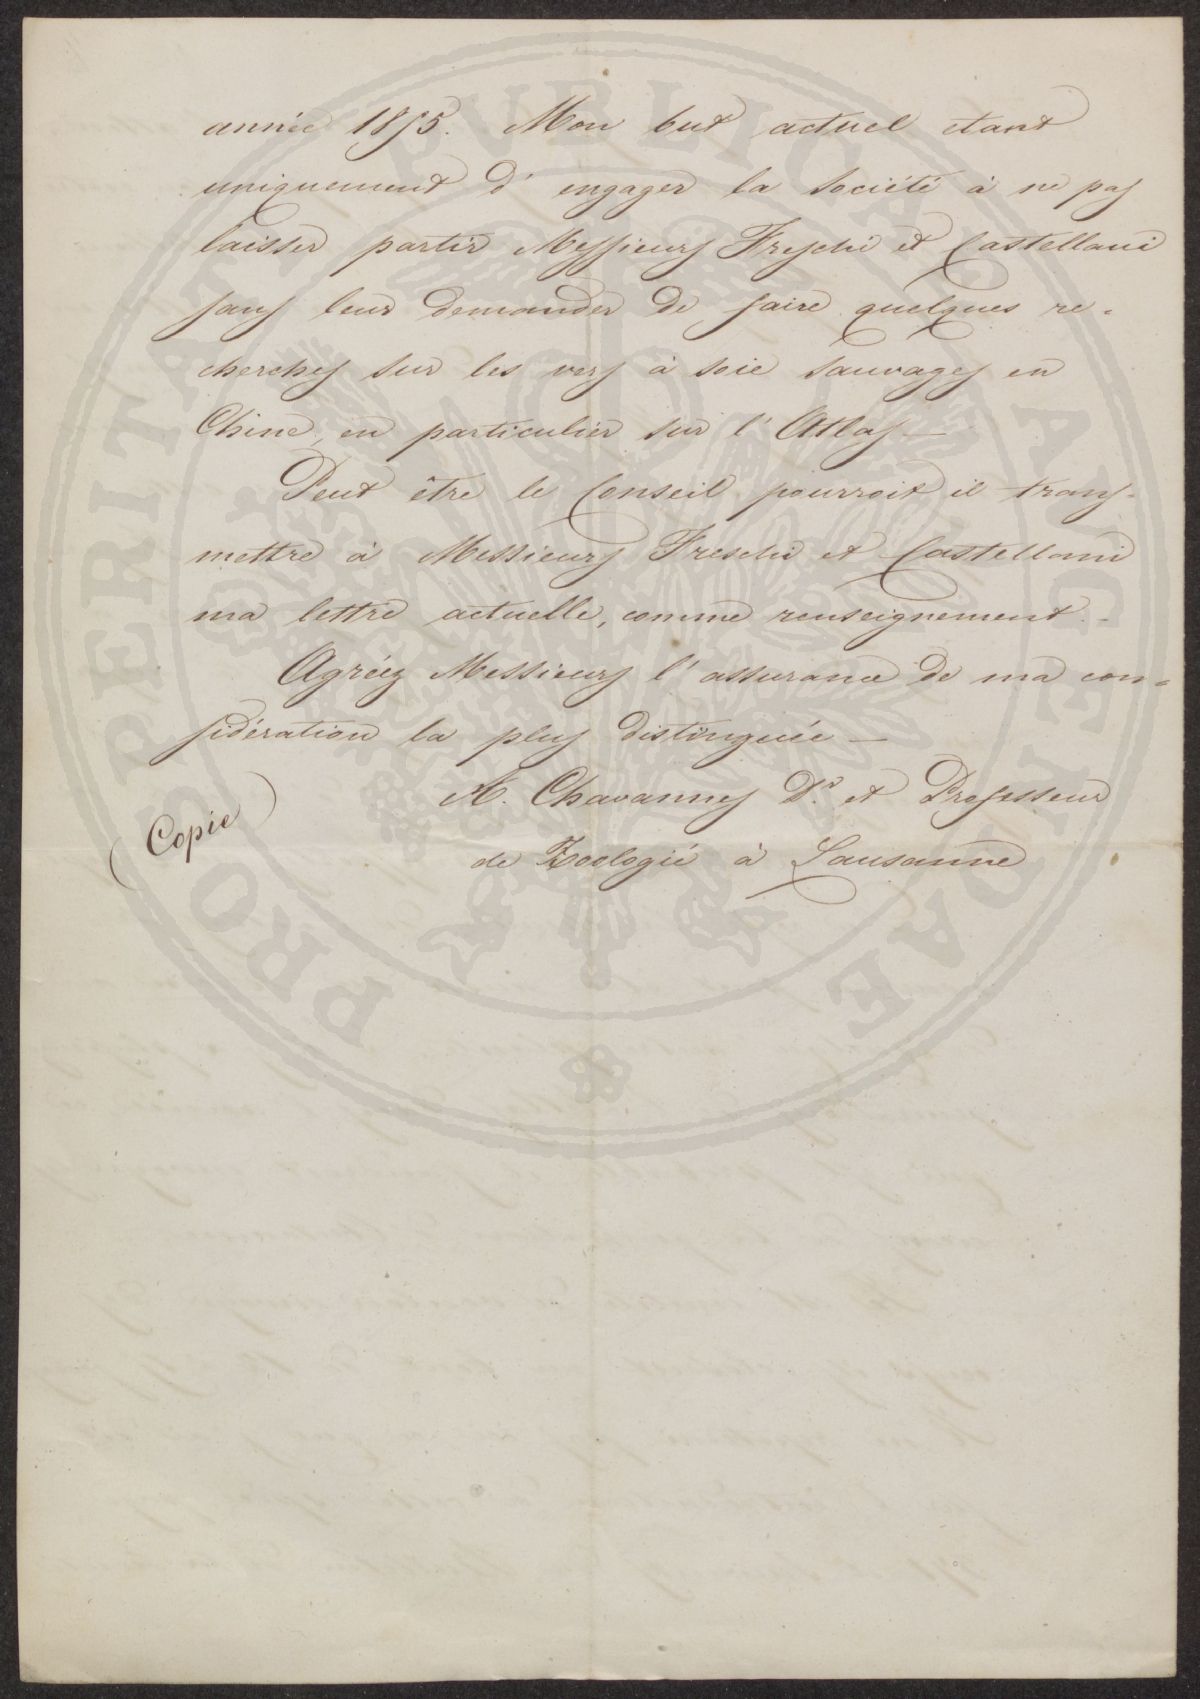 année 1855. Mon but actuel etant
uniquement d'engager la Société à ne pas
laisser partir Messieurs Freschi et Castellani
sans leur demander de faire quelques re-
cherches sur les vers à soie sauvages en
Chine, en particulier sur l'Atlas —
Peut être le Conseil pourroit il trans-
mettre à Messieurs Freschi et Castellani
ma lettre actuelle, comme renseignement.
Agréez Messieurs l'assurance de ma con-
sidération la plus distinguée —
A. Chavannes Dr. et Professeur
(Copie)
de Zoologie à Lausanne
PROPERITAT PVBLICA AVGENDAE